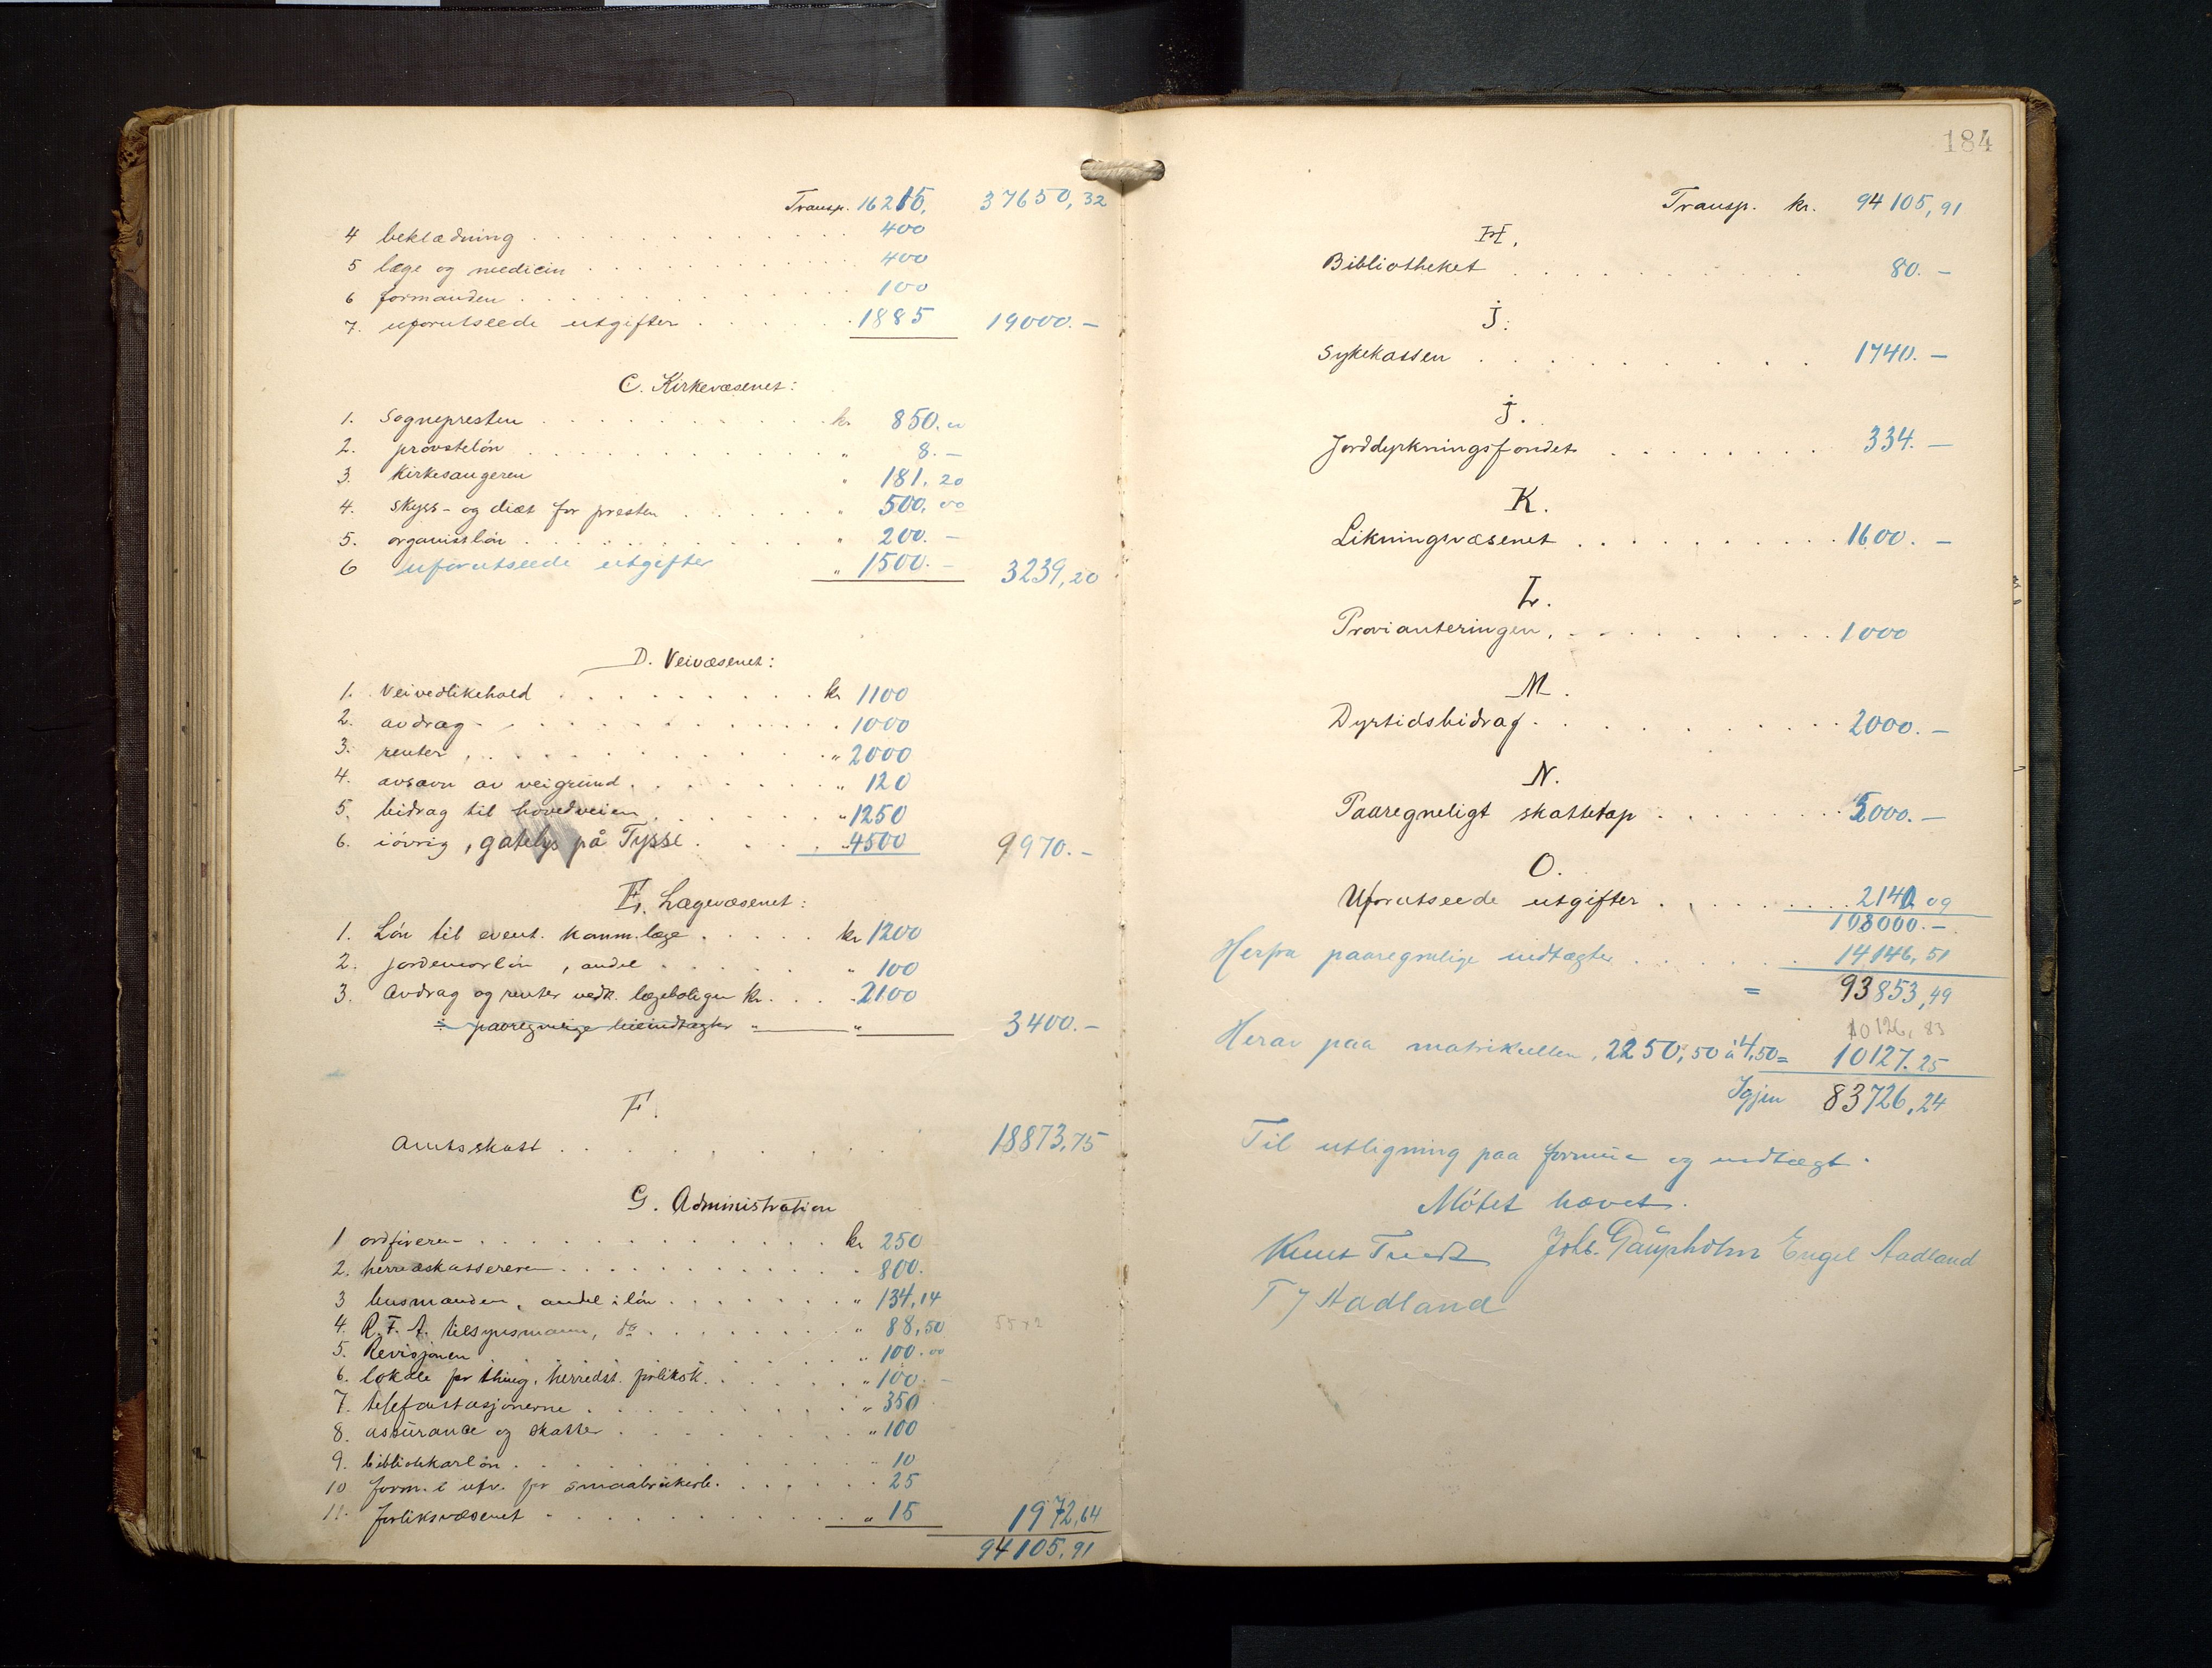 Transp. 16215, 37650,32
4 beklædning . . . 400
5 læge og medicin . . . 400
6 formanden . . . 100
7. uforutseede utgifter . . . 1885 19000.-
C. Kirkevæsenet:
1. Sognepresten . . . kr 850. "
2. provstelön . . . " 8.-
3. Kirkesangeren " 181,20
4. Skyss- og diæt for presten . . . " 500,00
5. organistlön . . . " 200.-
6 uforutseede utgifter " 1500.- 3239,20
D. Veivæsenet:
1. Veivedlikehold . . . kr 1100
2. avdrag . . . 1000
3. renter, . . . " 2000
4. avsavn av veigrund . . . " 120
5. bidrag til hovedveien . . . " 1250
6. iövrig, gatelys på Tysse . . . 4500 9970.-
E. Lægevæsenet:
1. Lön til event. komm.læge . . . kr 1200
2. jordemorlön, andel . . . " 100
3. Avdrag og renter vedk. lægeboligen kr. . . . 2100
÷ paaregnelige leieindtægter " " 3400.-
F.
Amtsskatt . . . 18873,75
G. Administration
1 ordföreren . . . kr 250
2. herredskassereren . . . 800.
3 lensmanden, andel i lön . . . " 134,14
4. R.F.A. tilsynsmann, do . . . " 88,50 55x2
5. Revisjonen . . . " 100.00
6. lokale for thing, herredst. forliksk. . . . " 100.-
7. telefonstasjonerne . . . " 350
8. assurance og skatter . . . " 100
9. bibliotekarlön . . . " 10
10 form. i utv. for smaabrukerl. . . . 25
11. forliksvæsenet . . . " 15 1972,64
94105,91
184
Transp. kr. 94105,91
H.
Bibliotheket . . . 80.-
I:
Sykekassen . . . 1740.-
J.
Jorddyrkningsfondet . . . 334.-
K.
Likningsvæsenet . . . 1600.-
L.
Provianteringen, . . . 1000
M.
Dyrtidsbidrag . . . 2000.-
N.
Paaregneligt skattetap . . . 5000.-
O.
Uforutseede utgifter . . . 2140,09
108000.-
Herfra paaregnelige indtægter . . . 14146,51
= 93853,49
10126,83
Herav paa matrikullen, 2250,50 à 4,50 = 10127.25
Igjen 83726,24
Til utligning paa formue og indtægt.
Mötet hævet.
Knut Johs. Gaupholm Engel Aadland
T J Aadland